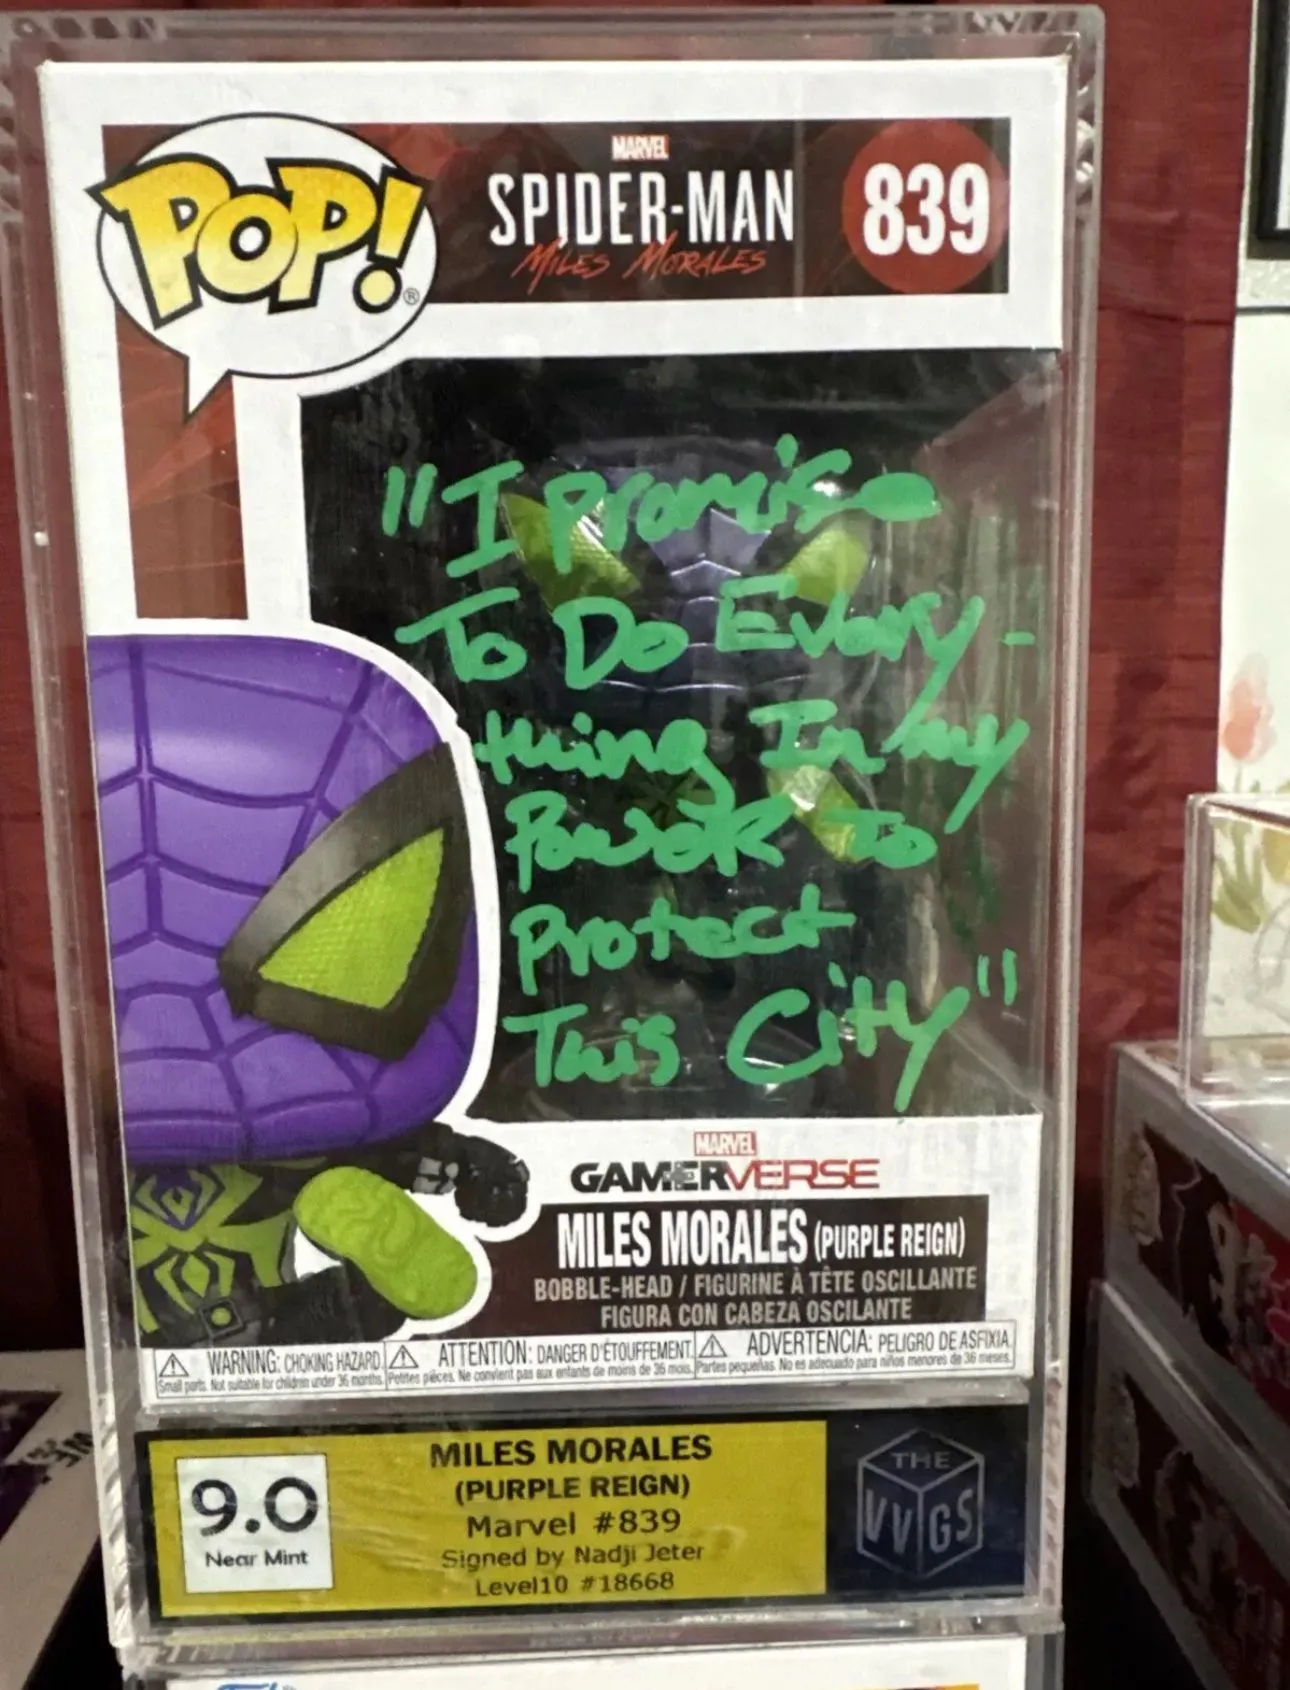 POP!
MARVEL
SPIDER-MAN
MILES MORALES
839
"I Promise
To Do Every-
thing In my
Power To
Protect
This City"
MARVEL
GAMERVERSE
MILES MORALES (PURPLE REIGN)
BOBBLE-HEAD / FIGURINE À TÊTE OSCILLANTE
FIGURA CON CABEZA OSCILANTE
WARNING: CHOKING HAZARD.
Small parts. Not suitable for children under 36 months.
ATTENTION: DANGER D'ÉTOUFFEMENT.
Petites pièces. Ne convient pas aux enfants de moins de 36 mois.
ADVERTENCIA: PELIGRO DE ASFIXIA.
Partes pequeñas. No es adecuado para niños menores de 36 meses.
9.0
Near Mint
MILES MORALES
(PURPLE REIGN)
Marvel #839
Signed by Nadji Jeter
Level10 #18668
THE
VVGS